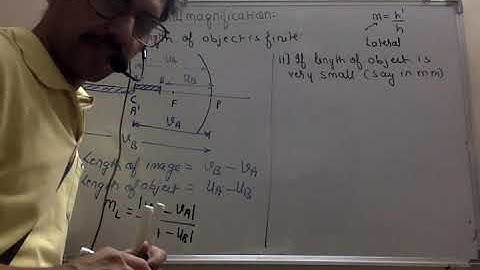 magnification:
length of object is finite
m = h'/h
Lateral
ii] If length of object is
very small (say in mm)
u_A
u_B
C F P
A'
v_A
v_B
Length of image = v_B - v_A
Length of object = u_A - u_B
m_L = - v_A|
- u_B|